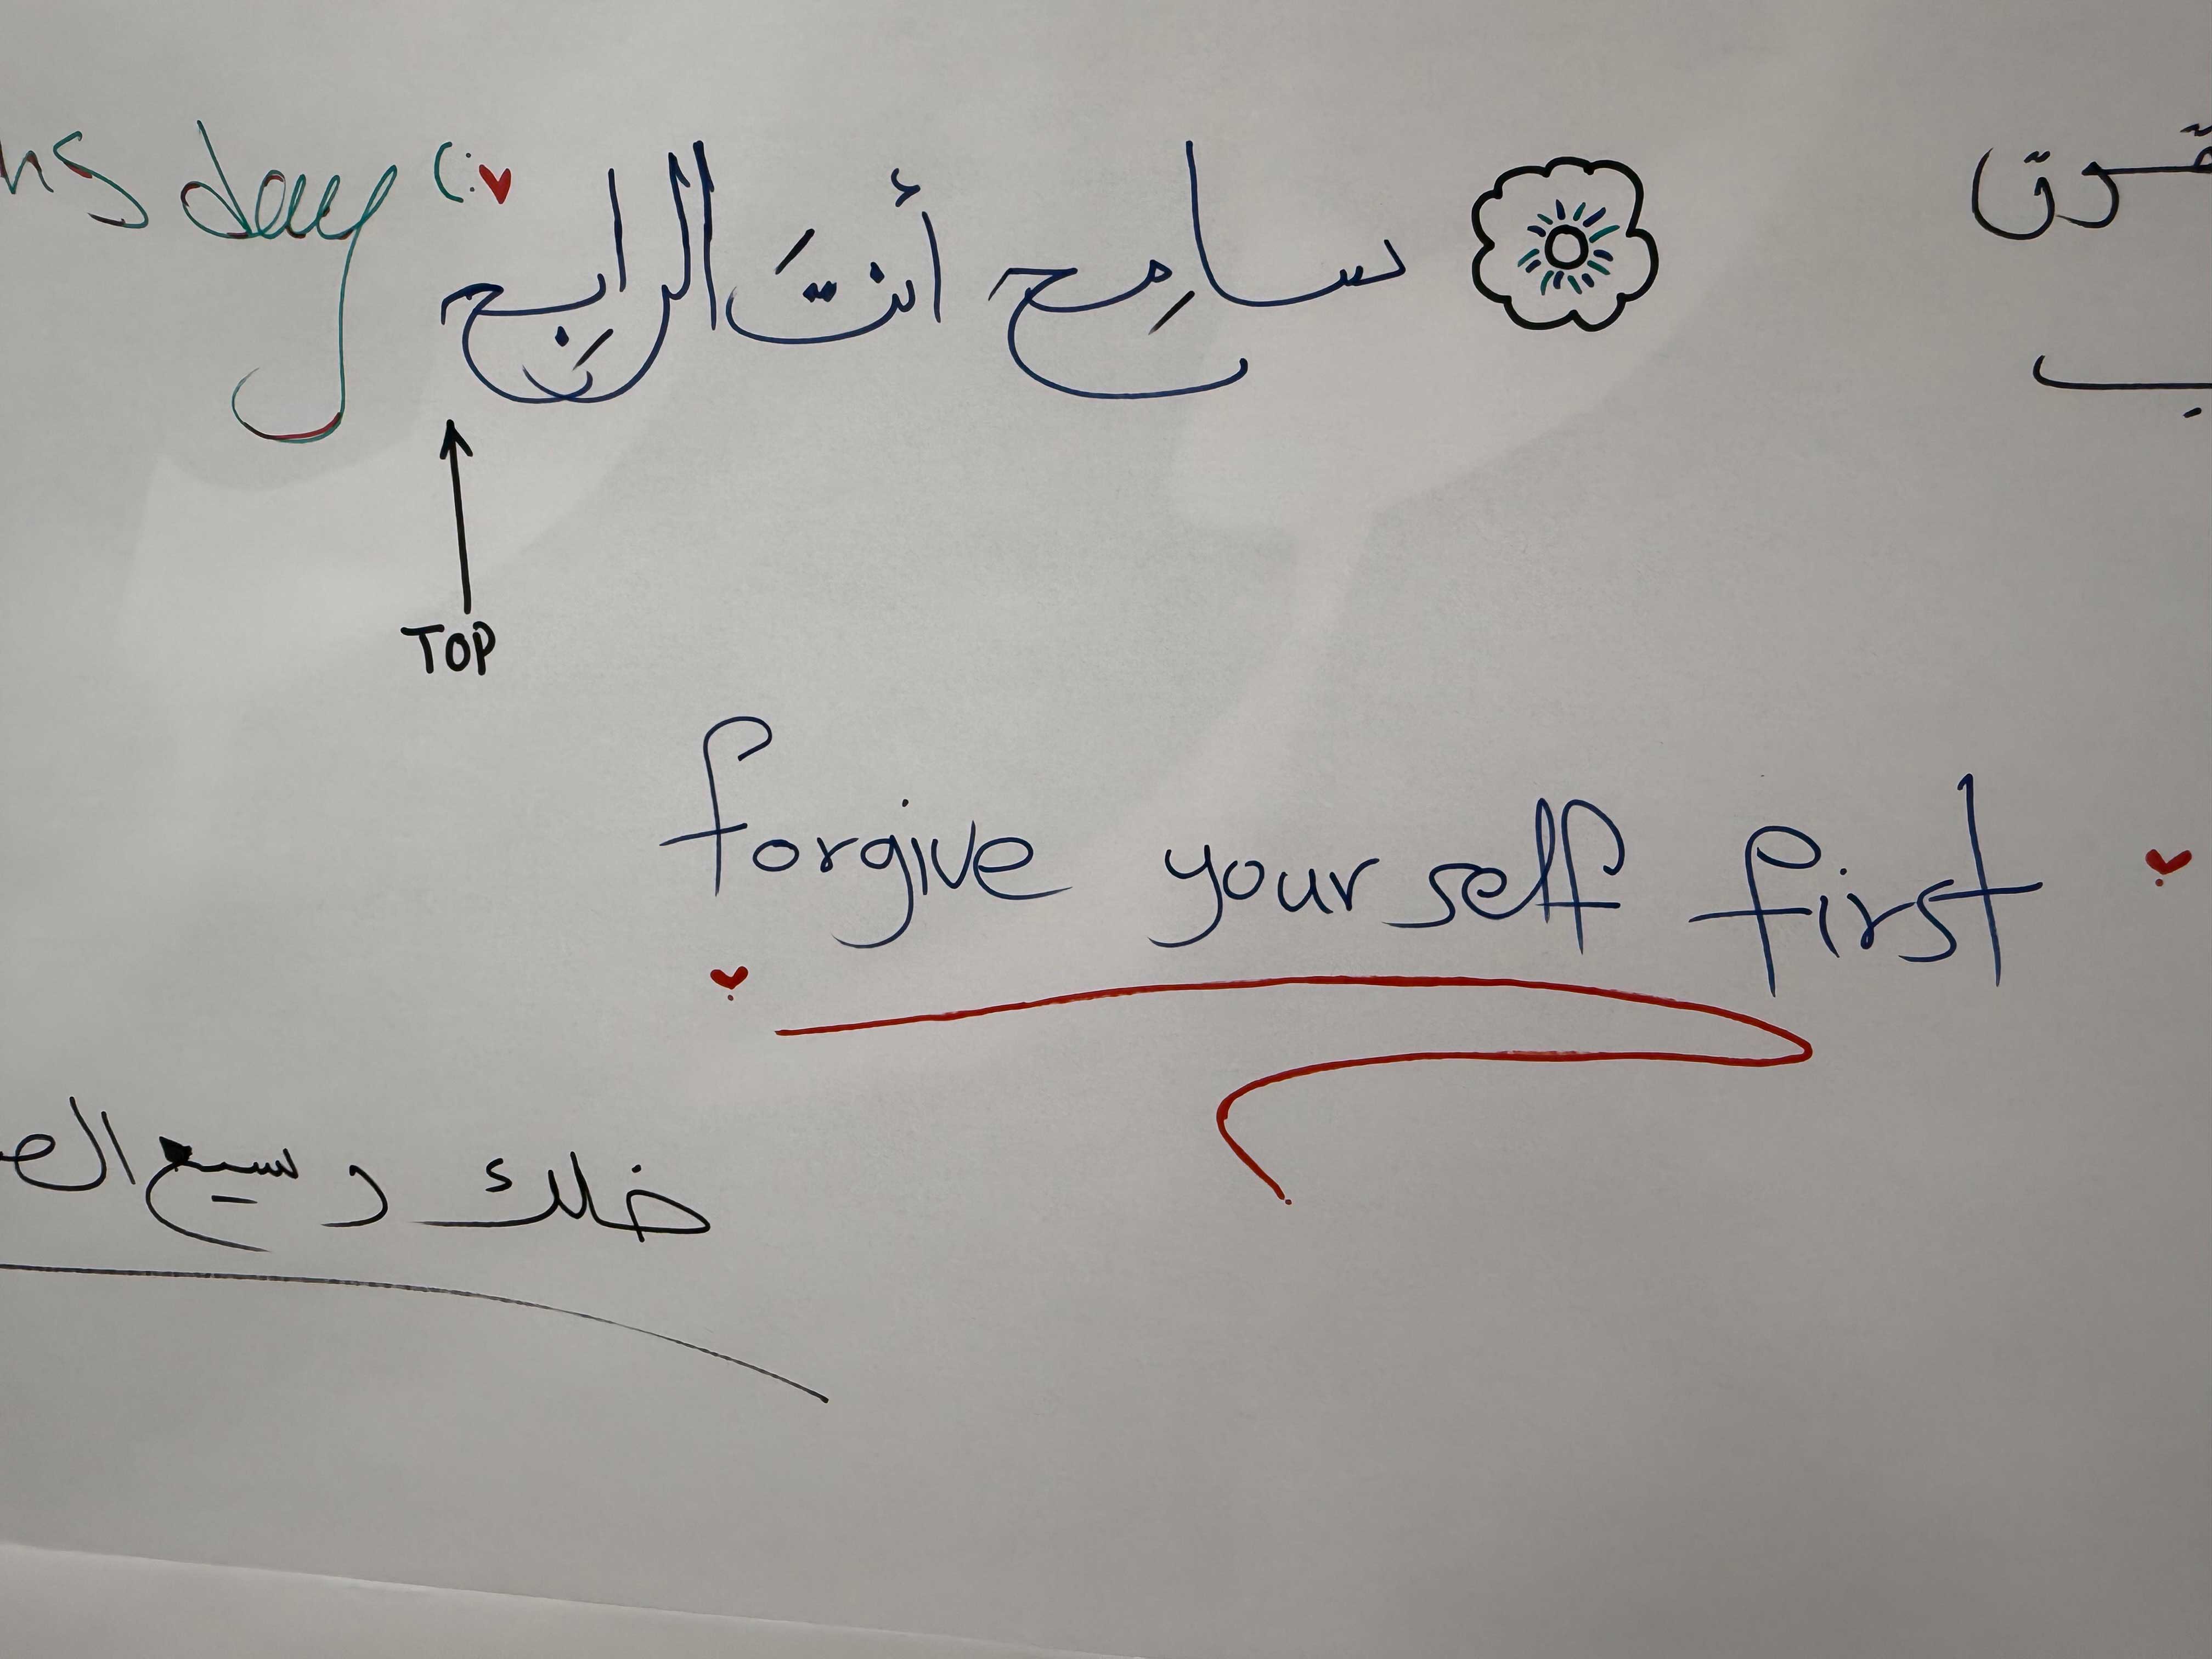 سامِح أنتَ الرابِح
day (:
TOP
forgive yourself first
خلك وسيع